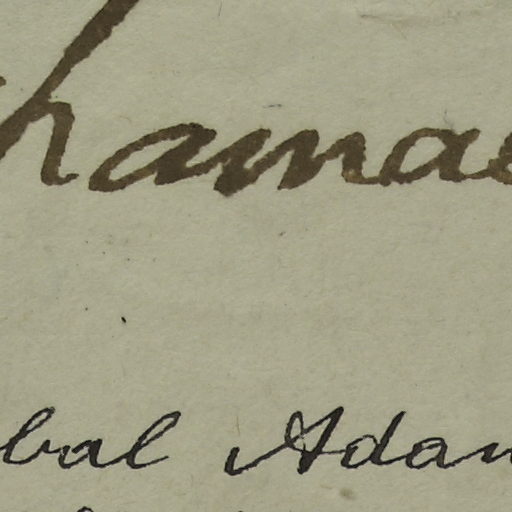 hamae
bal Adan